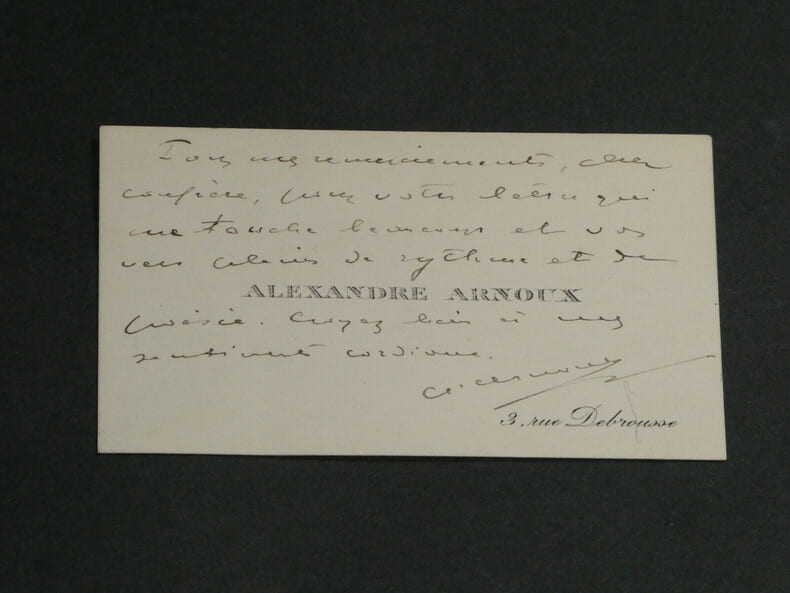 Tous mes remerciements, cher
confrère, pour votre lettre qui
me touche beaucoup et vos
vers pleins de rythme et de
ALEXANDRE ARNOUX
poésie. Croyez bien à mes
sentiments cordiaux.
A. Arnoux
3, rue Debrousse